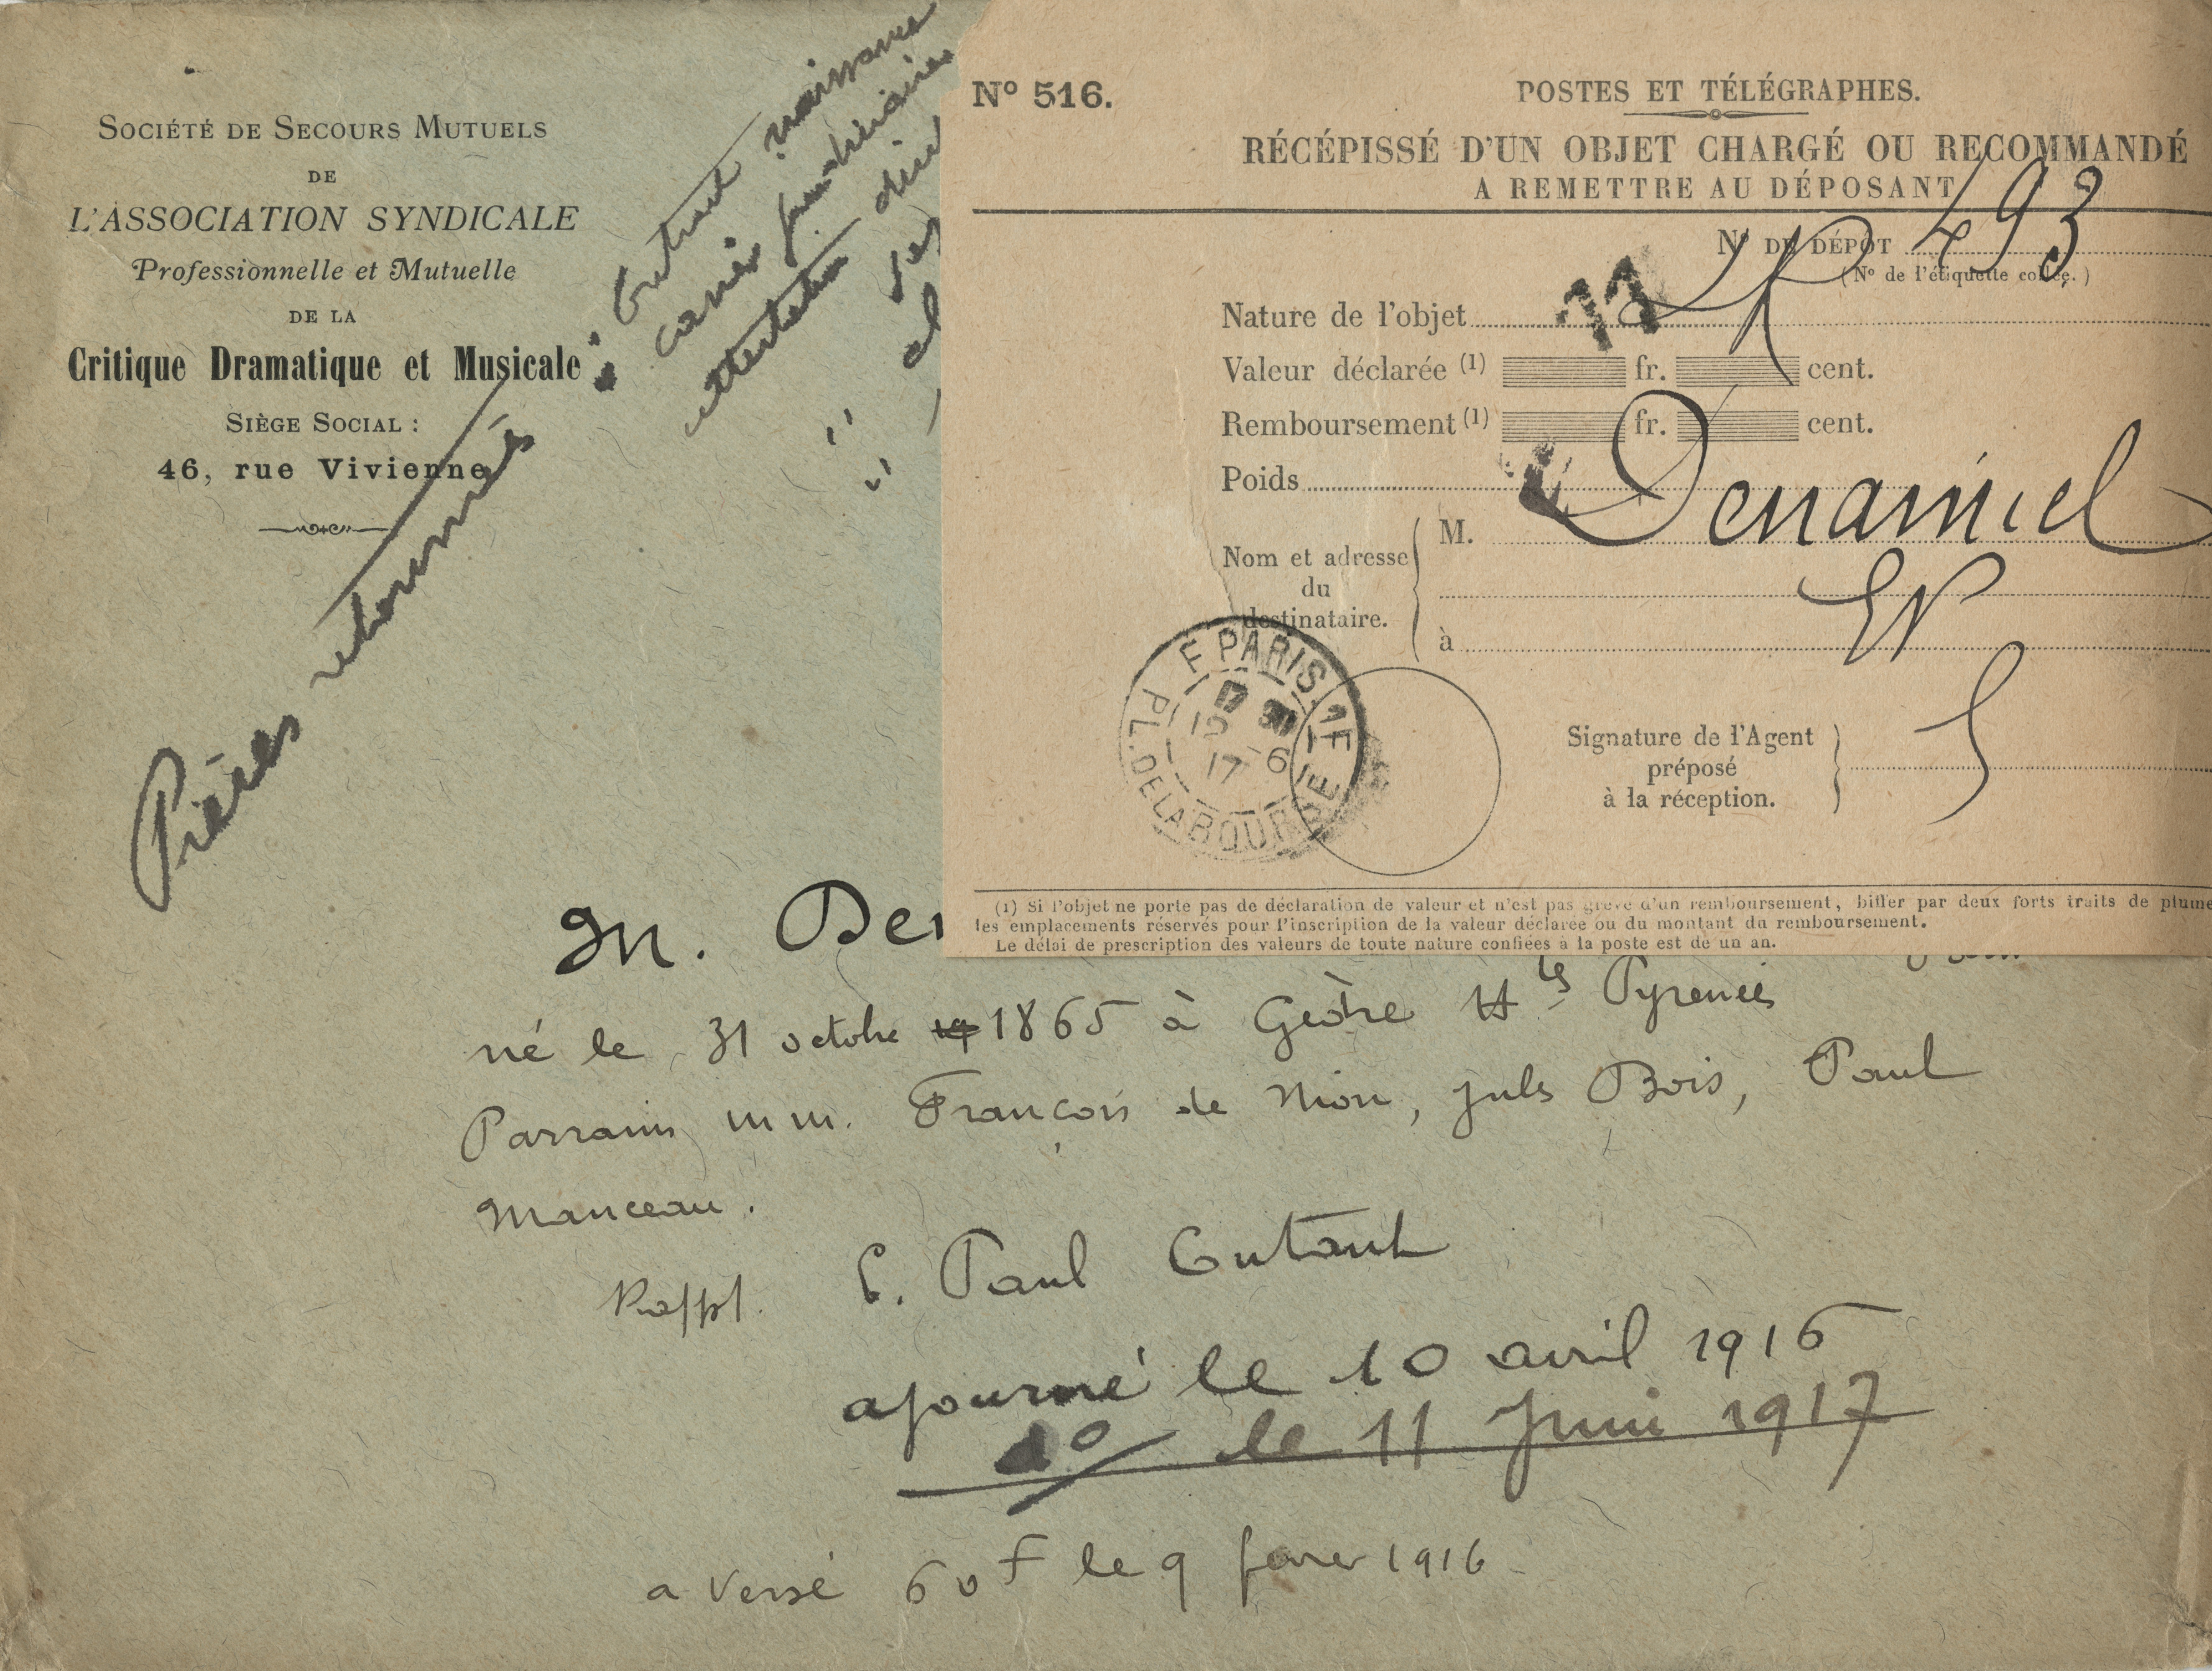 SOCIÉTÉ DE SECOURS MUTUELS
DE
L'ASSOCIATION SYNDICALE
Professionnelle et Mutuelle
DE LA
Critique Dramatique et Musicale
SIÈGE SOCIAL :
46, rue Vivienne
Pièces retournés : Extrait naissance
casier judiciaire
attestation
No 516.
POSTES ET TÉLÉGRAPHES.
RÉCÉPISSÉ D'UN OBJET CHARGÉ OU RECOMMANDÉ
A REMETTRE AU DÉPOSANT
No DE DÉPÔT 493
(No de l'étiquette collée.)
Nature de l'objet
Valeur déclarée (1) fr. cent.
Remboursement (1) fr. cent.
Poids
Nom et adresse du destinataire.
M. Denamiel
à
PARIS
PL. DE LA BOURSE
17 6
Signature de l'Agent
préposé
à la réception.
(1) Si l'objet ne porte pas de déclaration de valeur et n'est pas grevé d'un remboursement, biffer par deux forts traits de plume
les emplacements réservés pour l'inscription de la valeur déclarée ou du montant du remboursement.
Le délai de prescription des valeurs de toute nature confiées à la poste est de un an.
M. Den
né le 31 octobre 1865 à Gèdre Htes Pyrenées
Parrains mm. François de Nion, Jules Bois, Paul
Manceau.
Rappt. Paul
ajourné le 10 avril 1916
do le 11 Juin 1917
a versé 60f le 9 fevrier 1916